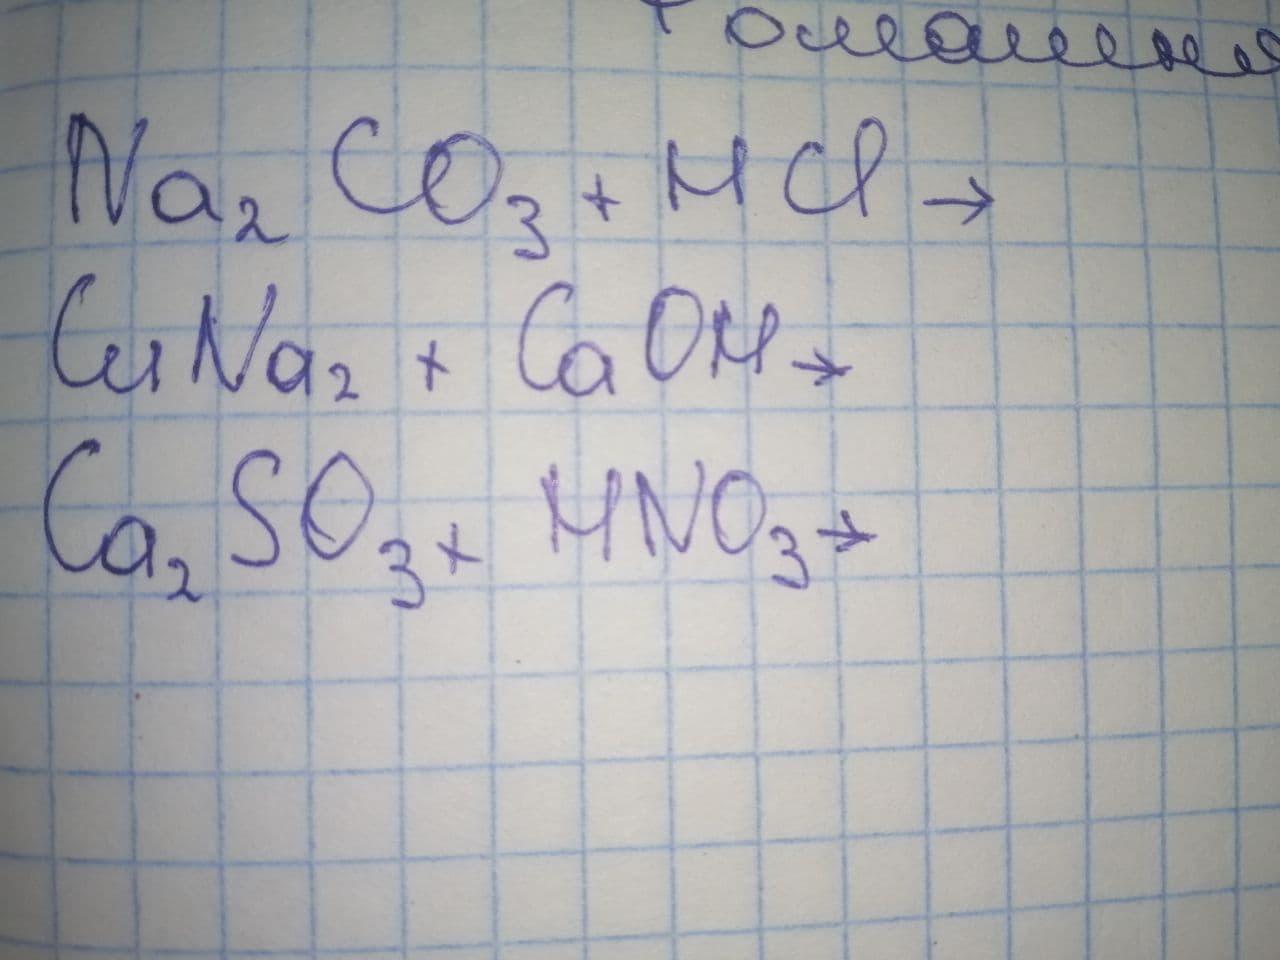 Na₂CO₃ + HCl →
CuNa₂ + CaOH →
Ca₂SO₃ + HNO₃ →